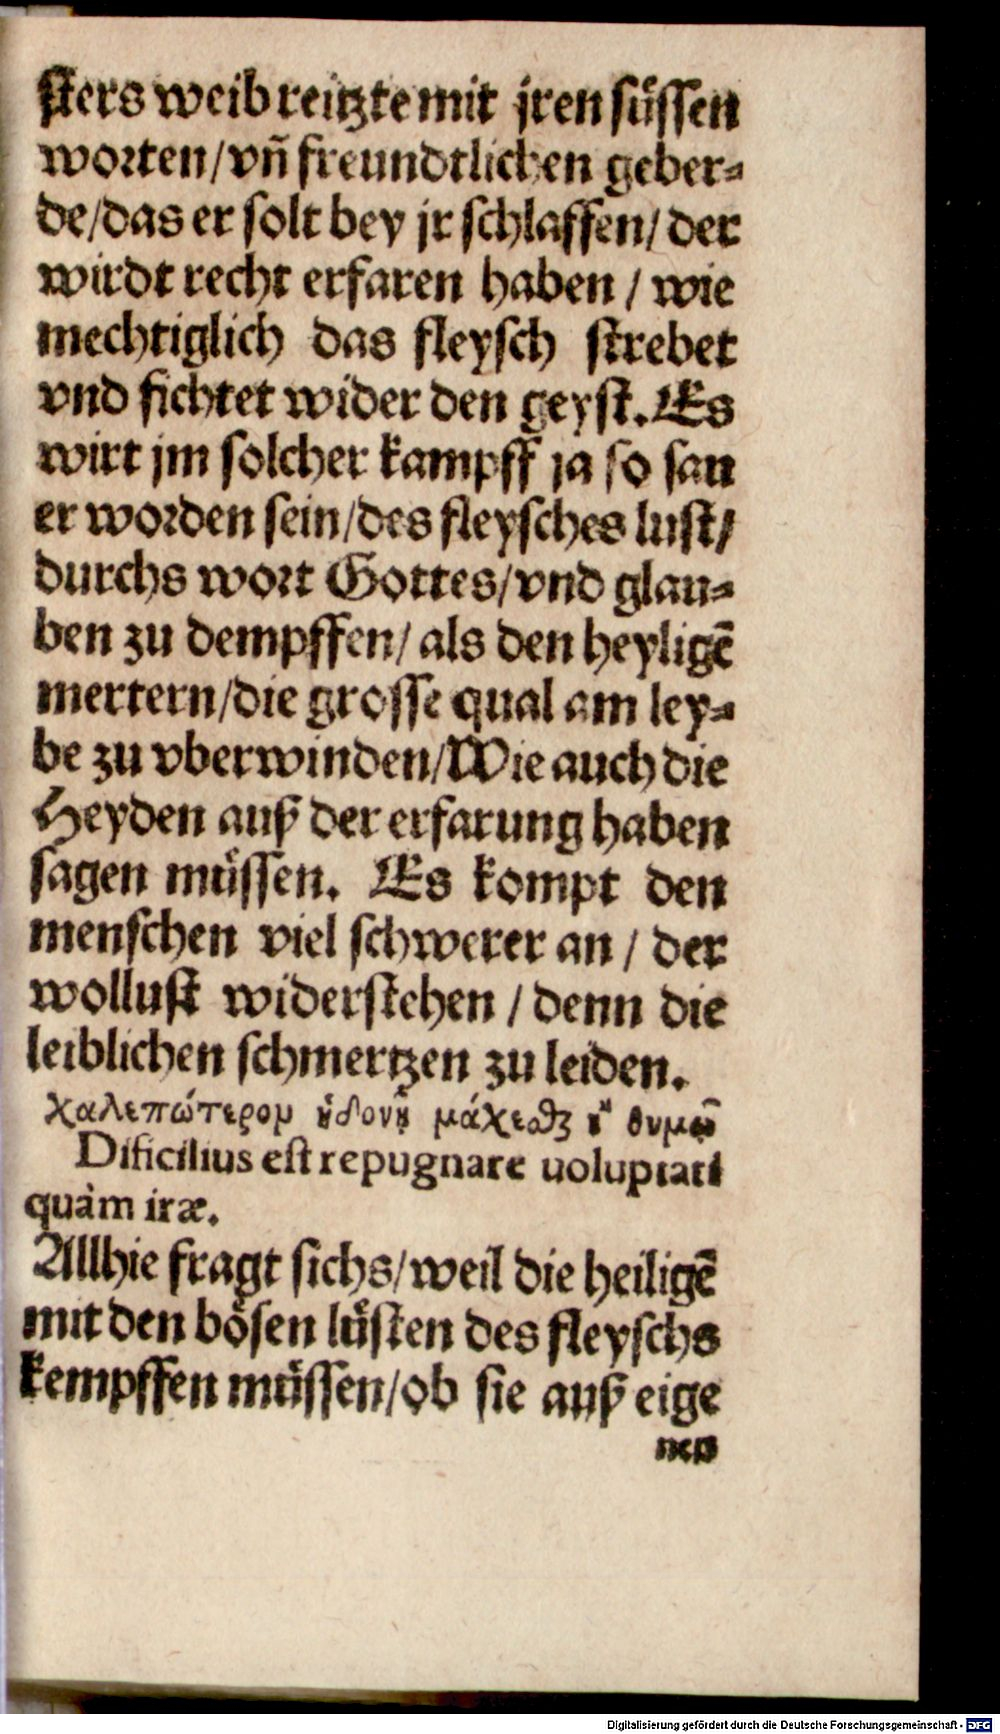 sters weib reitzte mit jren süssen
worten/vñ freundtlichen geber-
de/das er solt bey jr schlaffen/ der
wirdt recht erfaren haben / wie
mechtiglich das fleysch strebet
vnd fichtet wider den geyst. Es
wirt jm solcher kampff ja so sau
er worden sein/des fleysches lust/
durchs wort Gottes/vnd glau-
ben zu dempffen/ als den heyligē
mertern/die grosse qual am ley-
be zu vberwinden/Wie auch die
Heyden auß der erfarung haben
sagen müssen. Es kompt den
menschen viel schwerer an / der
wollust widerstehen / denn die
leiblichen schmertzen zu leiden.
χαλεπώτερον ἡδονῇ μάχεσθαι ἢ θυμῷ
Dificilius est repugnare uoluptati
quàm iræ.
Allhie fragt sichs/weil die heiligē
mit den bösen lüsten des fleyschs
kempffen müssen/ob sie auß eige
nen
Digitalisierung gefördert durch die Deutsche Forschungsgemeinschaft - DFG